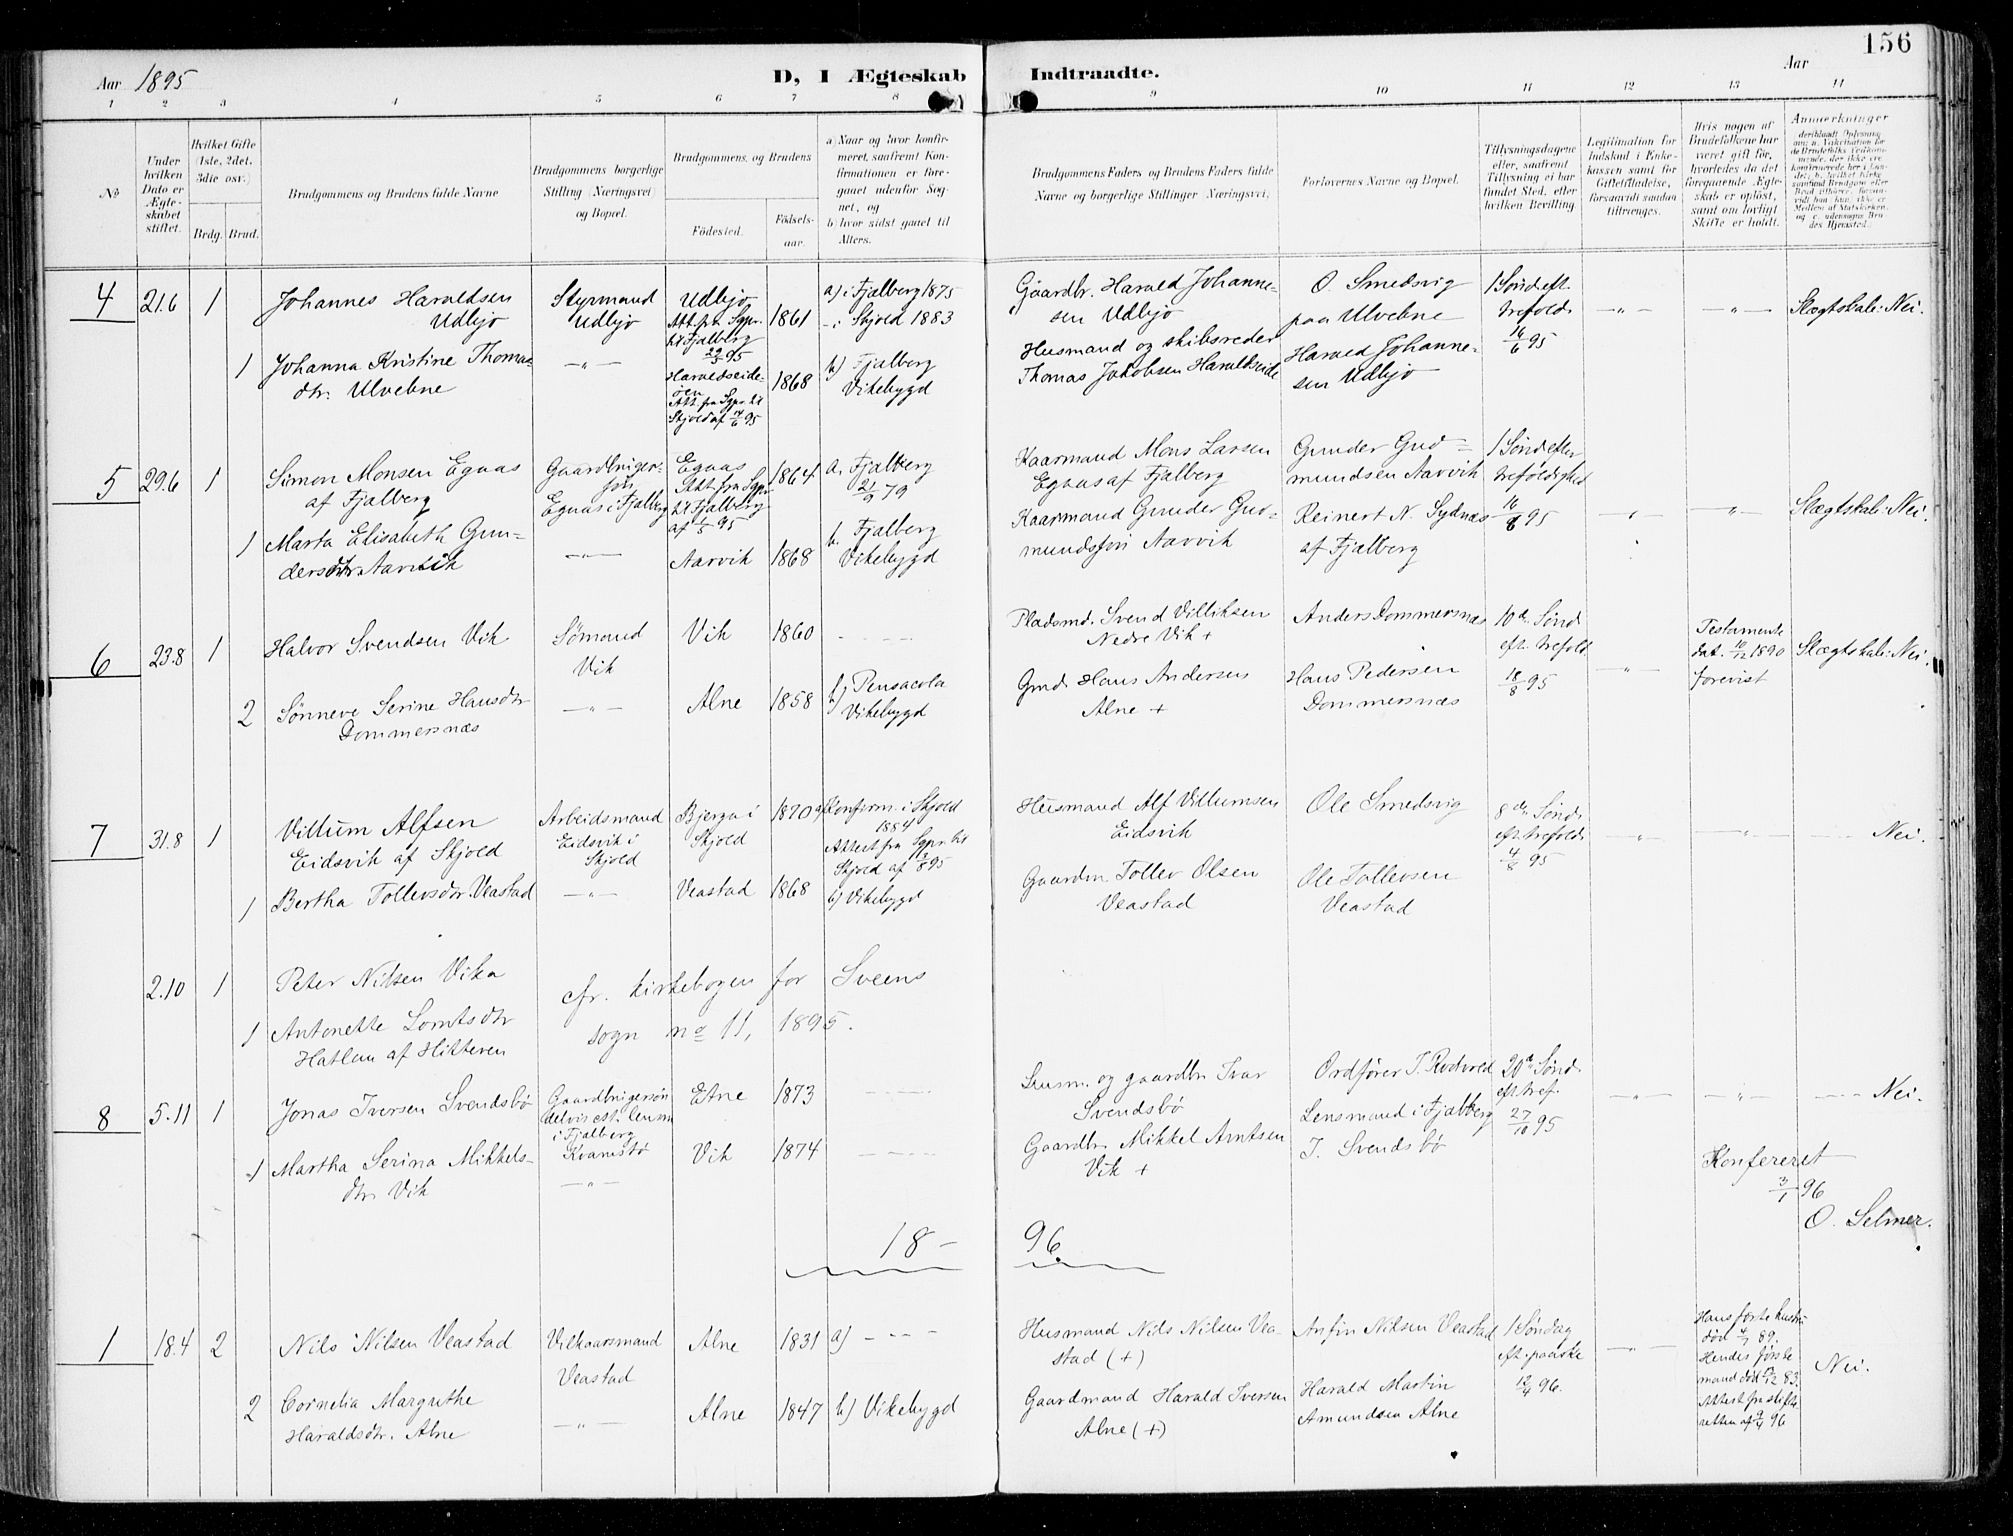 156
Aar 1895
D, I Ægteskab Indtraadte.
Aar
1 2 3 4 5 6 7 8 9 10 11 12 13 14
No
Under hvilken Dato er Ægteskabet stiftet.
Hvilket Gifte (1ste, 2det, 3die osv.)
Brdg. Brud.
Brudgommens og Brudens fulde Navne
Brudgommens borgerlige Stilling (Næringsvei) og Bopæl.
Brudgommens og Brudens
Fødested.
Fødselsaar.
a) Naar og hvor konfirmeret, saafremt Konfirmationen er foregaaet udenfor Sognet, og
b) hvor sidst gaaet til Alters.
Brudgommens Faders og Brudens Faders fulde Navne og borgerlige Stillinger (Næringsvei).
Forlovernes Navne og Bopæl.
Tillysningsdagene eller, saafremt Tillysning ei har fundet Sted, efter hvilken Bevilling
Legitimation for Indskud i Enkekassen samt for Giftetilladelse, forsaavidt saadan tiltrænges.
Hvis nogen af Brudefolkene har været gift før, hvorledes da det foregaaende Ægteskab er opløst, samt om lovligt Skifte er holdt.
Anmerkninger
4 21.6 1
Johannes Haraldsen
Udbjo
Styrmand
Udbjo
Udbjo
Att. fra Sgpr.
til Fjalberg
29/5 95
1861
a) i Fjalberg 1875
- i Skjold 1883
Gaardbr. Harald Johanne-
sen Udbjo
O. Smedsvig
paa Ulvebne
1 Sønd. eft.
trefold.
16/6 95
-"- -"- Slægtskab: Nei.
1 Johanna Kristine Thomas-
dtr. Ulvebne
-"-
Haraldseide-
øen
Att. fra Sgpr. til
Skjold af 14/6 95
1868
b) Fjalberg
Vikebygd
Husmand og skibsreder
Thomas Jakobsen Haraldseide
Harald Johanne-
sen Udbjo
5 29.6 1
Simon Monsen Egnas
af Fjalberg
Gaardbruger-
søn
Egnas i Fjalberg
Egnas
Att. fra Sgpr.
til Fjalberg
af 1/5 95
1864
a. Fjalberg
21/9 79
Kaarmand Mons Larsen
Egnas af Fjalberg
Gunder Gud-
mundsen Aarvik
1 Sønd. efter
trefoldighed
16/6 95
-"- -"- Slægtskab: Nei.
1 Marta Elisabeth Gun-
dersdtr. Aarvik
-"-
Aarvik
1868
b. Fjalberg
Vikebygd
Kaarmand Gunder Gud-
mundssøn Aarvik
Reinert N. Sydnæs
af Fjalberg
6 23.8 1
Halvor Svendsen Vik
Sømand
Vik
Vik
1860
- - - -
Pladsmd. Svend Villiksen
Nedre Vik +
Anders Dommersnæs
10de Sønd.
eft. trefold.
18/8 95
-"-
Testamente
dat. 10/12 1890
forevist
Slægtskab: Nei.
2 Sønneve Serine Hansdtr
Dommersnæs
-"-
Alne
1858
b) Pensacola
Vikebygd
Gmd. Hans Andersen
Alne +
Hans Pedersen
Dommersnæs
7 31.8 1
Villum Alfsen
Eidsvik af Skjold
Arbeidsmand
Eidsvik i
Skjold
Bjerga i
Skjold
1870
a) Konfirm. i Skjold
1884
Attest fra Sgpr. til
Skjold af 12/8 95
Husmand Alf Villumsen
Eidsvik
Ole Smedsvig
8de Sønd.
eft. trefold.
4/8 95
-"- -"- Nei.
1 Bertha Tollevsdtr. Veastad
-"-
Veastad
1868
b) Vikebygd
Gaardm. Tollev Olsen
Veastad
Ole Tollevsen
Veastad
2.10 1
Peter Nilsen Vika
cfr. kirkebogen for Sveens
sogn no 11, 1895.
1 Antonette Lorntsdtr
Hatlen af Hitteren
8 5.11 1
Jonas Iversen Svendsbø
Gaardbrugersøn
delvis est. lensm
i Fjalberg
Kvamsbø
Etne
1873
- - - -
Lensm. og gaardbr. Ivar
Svendsbø
Ordfører T. Rødveld
Lensmand i Fjalberg
I. Svendsbø
20de Sønd.
eft. tref.
27/10 95
-"- -"- Nei.
1 Martha Serina Mikkels-
dtr. Vik
-"-
Vik
1874
- - - -
Gaardbr. Mikkel Arntsen
Vik +
Konfereret
3/1 96
O. Selmer.
18 - 96.
1 18.4 2
Nils Nilsen Veastad
Vilkaarsmand
Veastad
Alne
1831
a) - - -
Husmand Nils Nilsen Vea-
stad (+)
Anfin Nilsen Veastad
1 Søndag
eft. paaske
12/4 96.
-"-
Hans første hustru
død 4/7 89.
Hendes første
mand død 15/12 83.
Attest fra skifte-
retten af 9/4 96
Nei.
2 Cornelia Margrethe
Haraldsdtr. Alne
-"-
Alne
1847
b) Vikebygd
Gaardmand Harald Iversen
Alne (+)
Harald Martin
Amundsen Alne